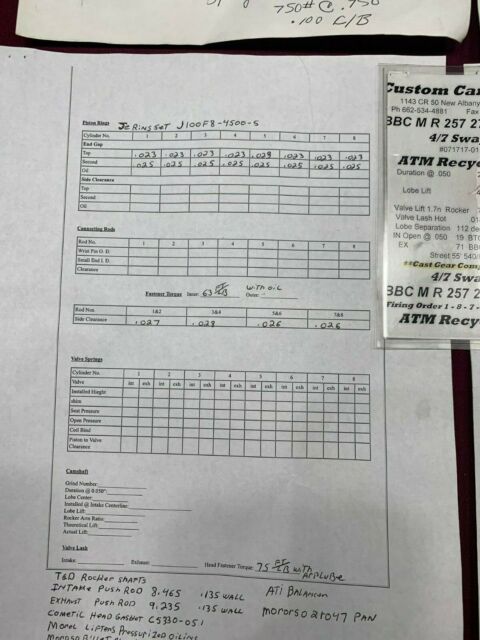 750# @ .750
.100 C/B
Custom Ca
1143 CR 50 New Albany
Ph 662-534-4881 Fax
BBC M R 257 2
4/7 Swa
#071717-01
ATM Recy
Duration @ 050
Lobe Lift
Valve Lift 1.7n Rocker
Valve Lash Hot .01
Lobe Separation 112 de
IN Open @ 050 19 BT
EX 71 BB
Street 55' 540/
**Cast Gear Com
4/7 Swa
BBC M R 257 2
Firing Order 1 - 8 - 7 -
ATM Recy
Piston Rings JE RING SET J100F8-4500-5
Cylinder No. 1 2 3 4 5 6 7 8
End Gap
Top .023 .023 .023 .023 .023 .023 .023 .023
Second .025 .025 .025 .025 .025 .025 .025 .025
Oil
Side Clearance
Top
Second
Oil
Connecting Rods
Rod No. 1 2 3 4 5 6 7 8
Wrist Pin O. D.
Small End I. D.
Clearance
Fastener Torque Inner: 63 FT/LB WITH OIL Outer:
Rod Nos. 1&2 3&4 5&6 7&8
Side Clearance .027 .028 .026 .026
Valve Springs
Cylinder No. 1 2 3 4 5 6 7 8
Valve int exh int exh int exh int exh int exh int exh int exh int exh
Installed Height
shim
Seat Pressure
Open Pressure
Coil Bind
Piston to Valve
Clearance
Camshaft
Grind Number:
Duration @ 0.050":
Lobe Center:
Installed @ Intake Centerline:
Lobe Lift:
Rocker Arm Ratio:
Theoretical Lift:
Actual Lift:
Valve Lash
Intake: Exhaust: Head Fastener Torque: 75 FT/LB WITH
ARPLUBE
T&D ROCKER SHAFTS
INTAKE PUSH ROD 8.465 .135 WALL ATI BALANCER
EXHAUST PUSH ROD 9.235 .135 WALL MOROSO 21047 PAN
COMETIC HEAD GASKET C5330-051
MOREL LIFTERS PRESSURIZED OILING